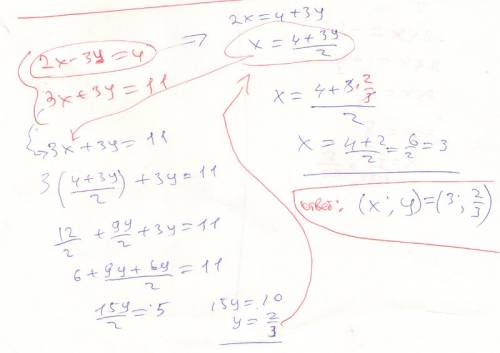 2x = 4 + 3y
2x - 3y = 4 => x = (4 + 3y)/2
3x + 3y = 11
3x + 3y = 11
3((4 + 3y)/2) + 3y = 11
12/2 + 9y/2 + 3y = 11
6 + (9y + 6y)/2 = 11
15y/2 = 5
15y = 10
y = 2/3
x = (4 + 3·2/3)/2
x = (4 + 2)/2 = 6/2 = 3
ответ: (x; y) = (3; 2/3)